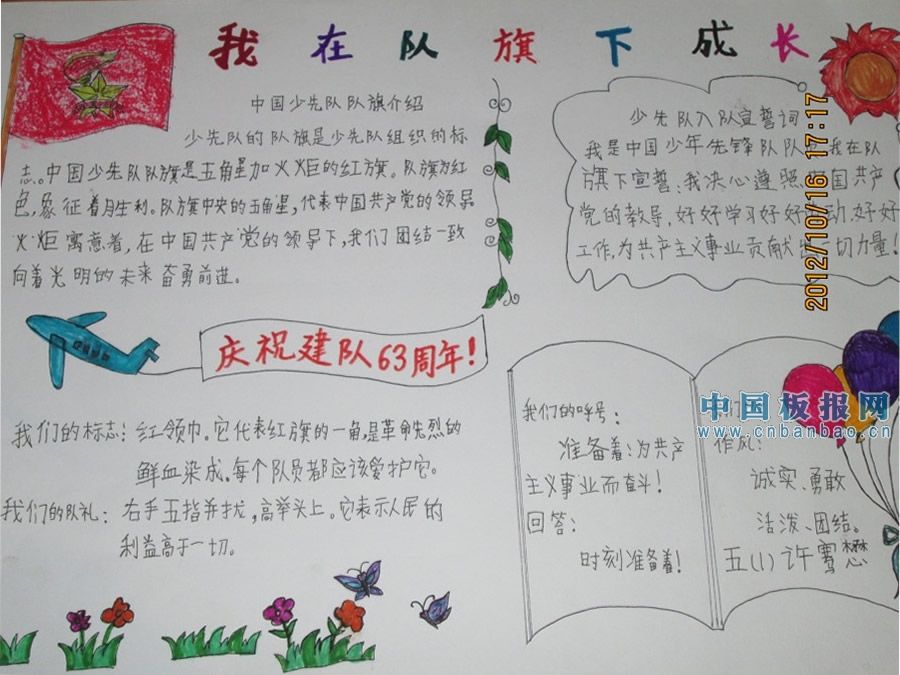 我在队旗下成长
中国少先队队旗介绍
少先队的队旗是少先队组织的标
志。中国少先队队旗是五角星加火火炬的红旗。队旗为红
色,象征着胜利。队旗中央的五角星,代表中国共产党的领导
火炬寓意着,在中国共产党的领导下,我们团结一致
向着光明的未来奋勇前进。
少先队入队宣誓词
我是中国少年先锋队队 我在队
旗下宣誓:我决心遵照 国共产
党的教导,好好学习好好 动,好好
工作,为共产主义事业贡献出一切力量!
2012/10/16 17:17
庆祝建队63周年!
我们的标志:红领巾。它代表红旗的一角,是革命先烈的
鲜血染成。每个队员都应该爱护它。
我们的队礼:右手五指并拢,高举头上。它表示人民的
利益高于一切。
我们的呼号:
准备着:为共产
主义事业而奋斗!
回答:
时刻准备着!
中国板报网
www.cnbanbao.cn
作风:
诚实、勇敢
活泼、团结。
五(1)许